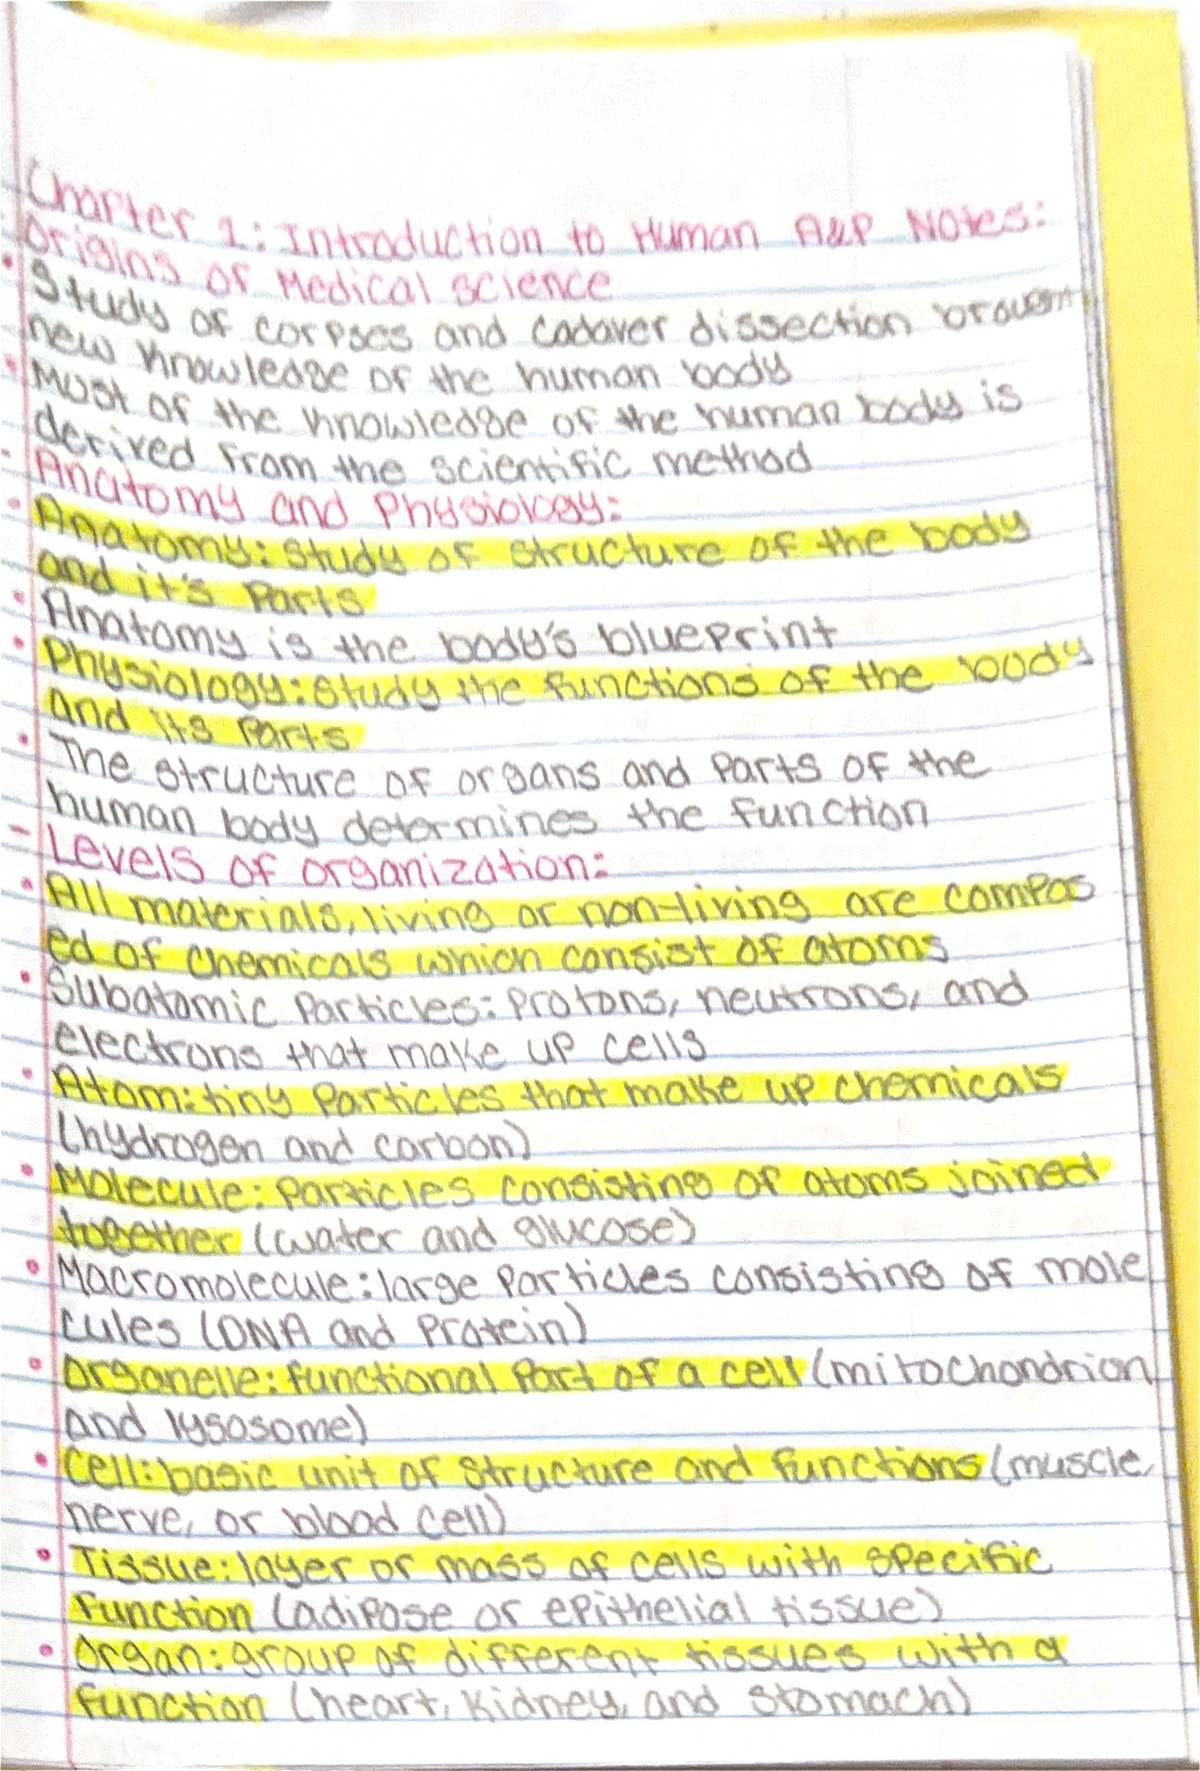 Chapter 1: Introduction to Human A&P Notes:
- Origins of Medical science
• Study of corpses and cadaver dissection brought
new knowledge of the human body
• Most of the knowledge of the human body is
derived from the scientific method
- Anatomy and Physiology:
• Anatomy: Study of structure of the body
and it's Parts
• Anatomy is the body's blueprint
• Physiology: Study the functions of the body
and its Parts
• The structure of organs and Parts of the
human body determines the function
- Levels of organization:
• All materials, living or non-living are compos
ed of chemicals which consist of atoms
• Subatomic Particles: Protons, neutrons, and
electrons that make up cells
• Atom: tiny Particles that make up chemicals
(hydrogen and carbon)
• Molecule: Particles consisting of atoms joined
together (water and glucose)
• Macromolecule: large Particles consisting of mole
cules (DNA and Protein)
• Organelle: functional Part of a cell (mitochondrion
and lysosome)
• Cell: basic unit of structure and functions (muscle,
nerve, or blood cell)
• Tissue: layer or mass of cells with specific
function (adipose or epithelial tissue)
• Organ: group of different tissues with a
function (heart, kidney, and stomach)